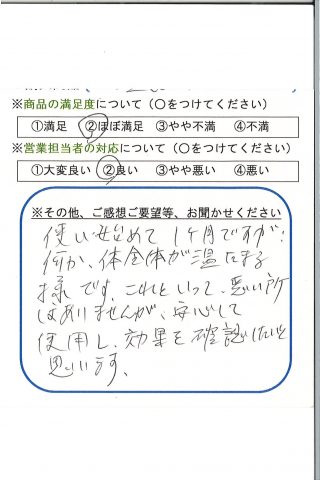 ※商品の満足度について（〇をつけてください）
①満足 ②ほぼ満足 ③やや不満 ④不満
※営業担当者の対応について（〇をつけてください）
①大変良い ②良い ③やや悪い ④悪い
※その他、ご感想ご要望等、お聞かせください
使い始めて1ヶ月ですが、
何か、体全体が温たまる
様です。これといって、悪い所
はありませんが、安心して
使用し、効果を確認したいと
思います、